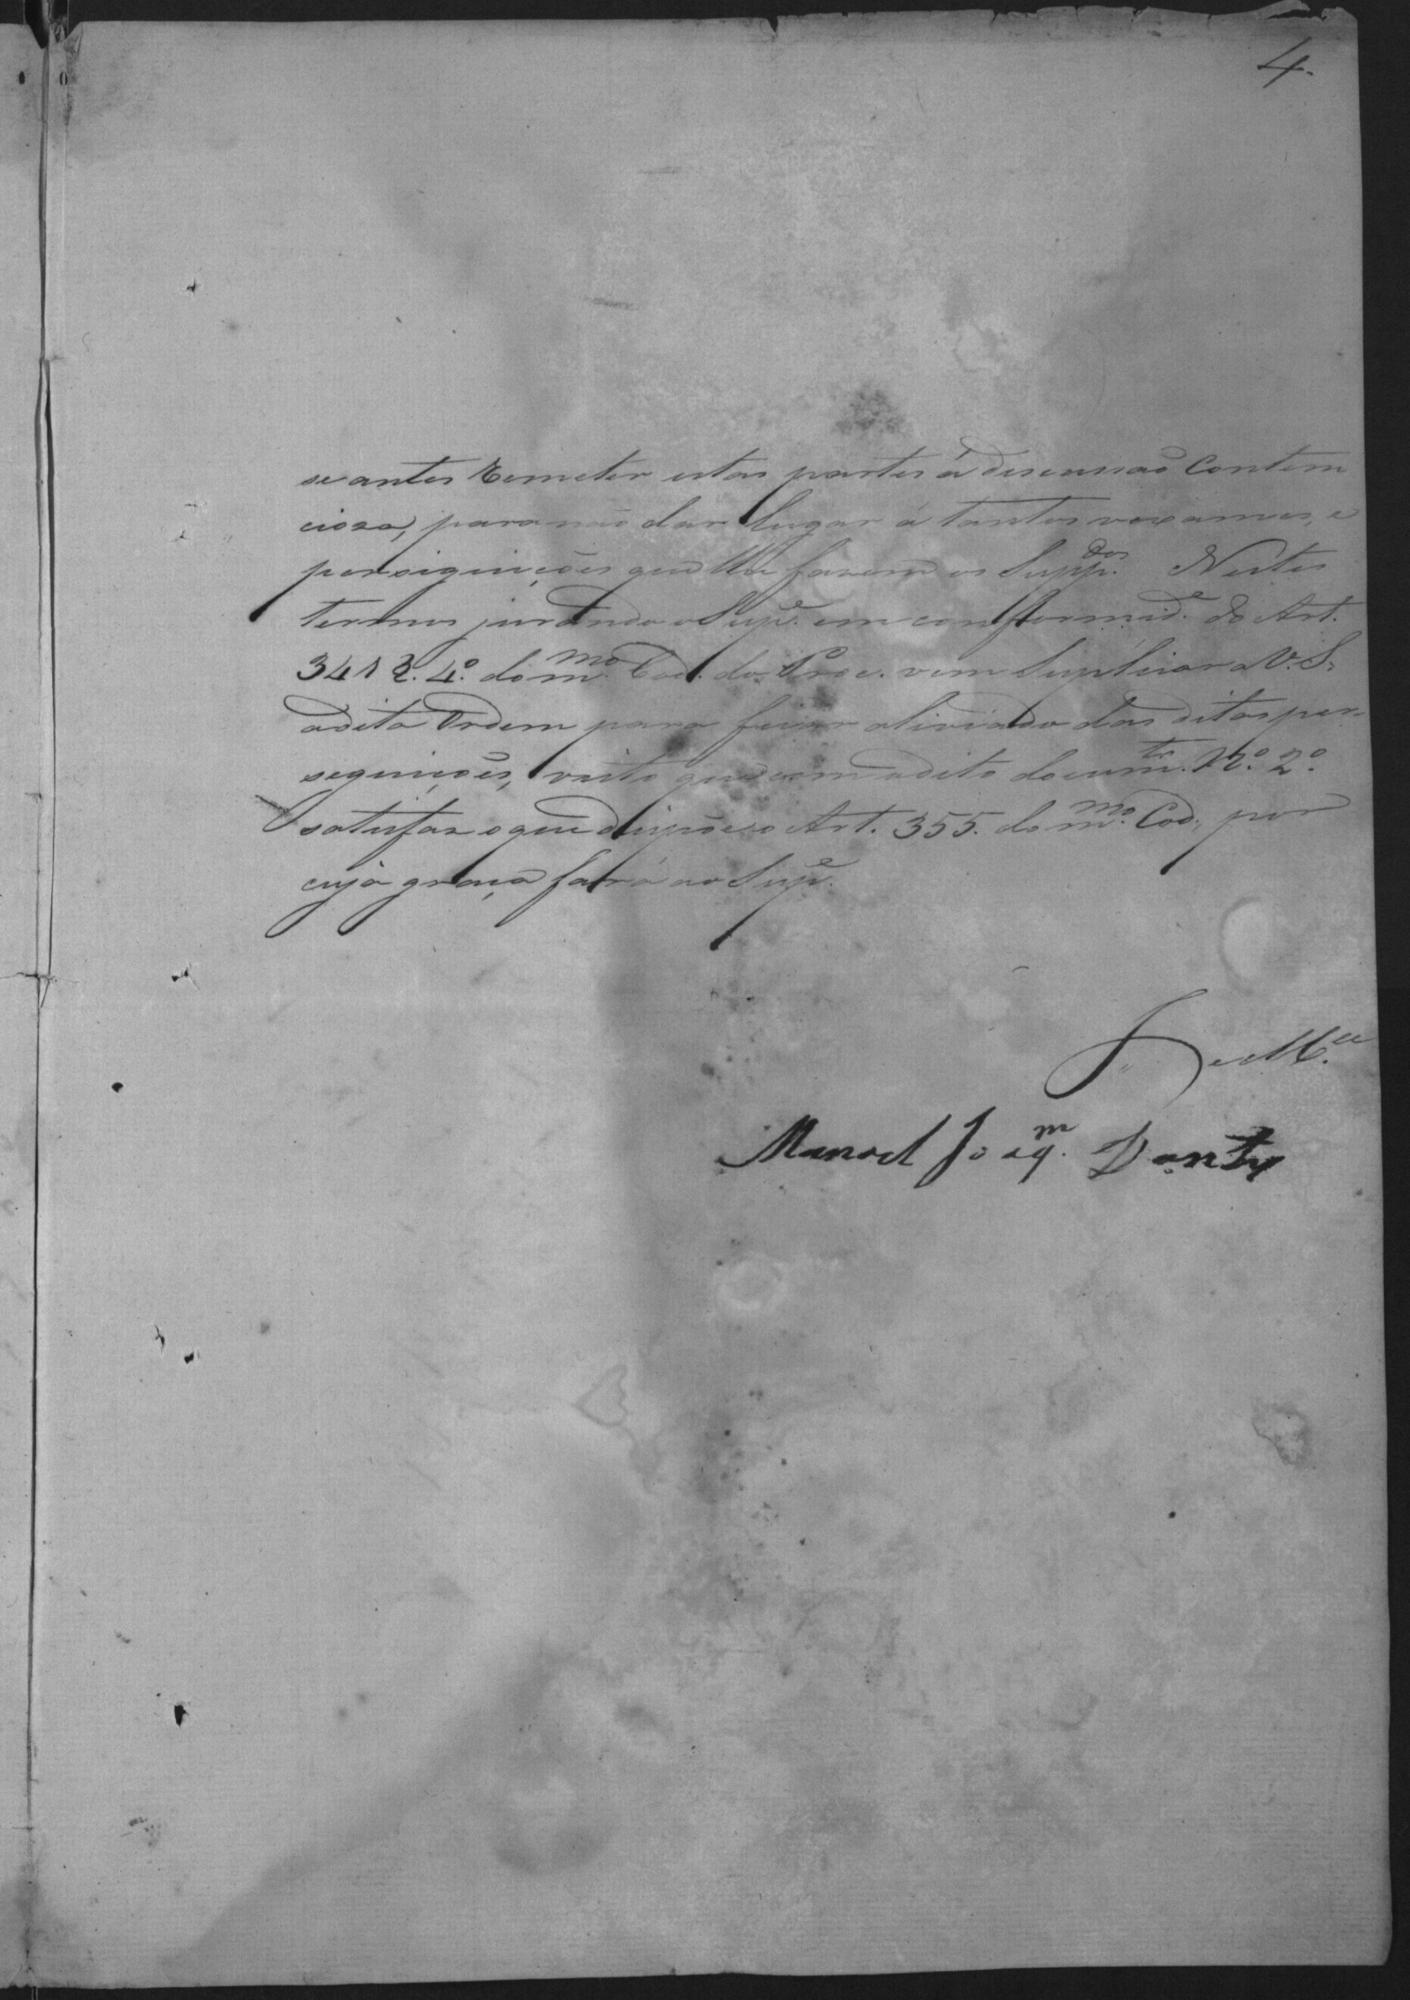 4.
se antes Remeter estas partes á discussão Conten
cioza, para não dar lugar á tantos vexames, e
persiguições que lhe fazem os Supp.dos Nestes
termos jurando o Sup.e em conformid.e do Art.
341 § 4.º do m.mo Cod. do Proc. vem Suplicar a V. S.
adita Ordem para ficar aliviado das ditas per-
seguições, visto que com adito docum.to N.º 2.º
satisfaz o que dispõe o Art. 355. do m.mo Cod, por
cuja graça fará ao Sup.e
E. R. M.ce
Manoel Joaq.m